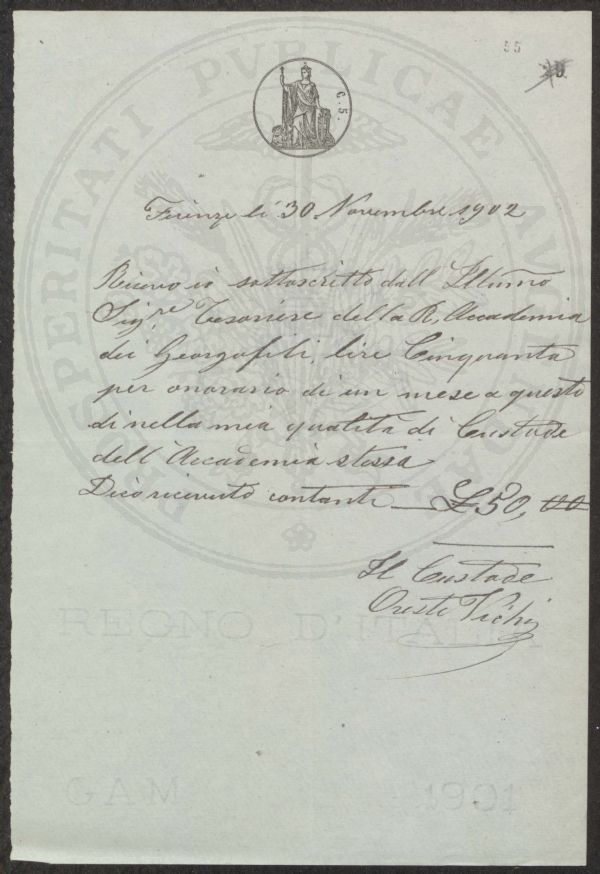 55
C. 5.
PROSPERITATI PVBLICAE AVGENDAE
Firenze li 30 Novembre 1902
Ricevo io sottoscritto dall' Illumo
Sigre Tesoriere della R. Accademia
dei Georgofili, lire Cinquanta
per onorario di un mese a questo
dì nella mia qualità di Custode
dell' Accademia stessa
Dico ricevuto contanti — £ 50, 00
Il Custode
Oreste Vichi
REGNO D'ITALIA
GAM 1901